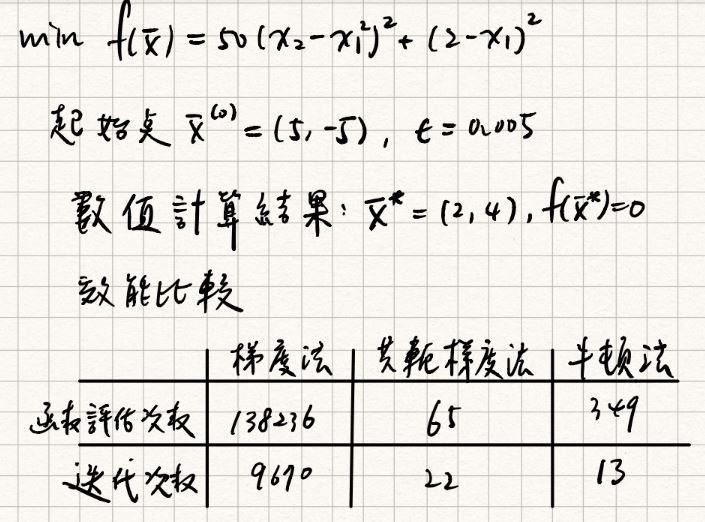 min f(x̄) = 50(x₂-x₁²)² + (2-x₁)²
起始点 x̄⁽⁰⁾ = (5, -5), ε = 0.005
數值計算結果: x̄* = (2, 4), f(x̄*)=0
效能比較
梯度法 共軛梯度法 牛頓法
函数評估次数 138236 65 349
迭代次数 9670 22 13